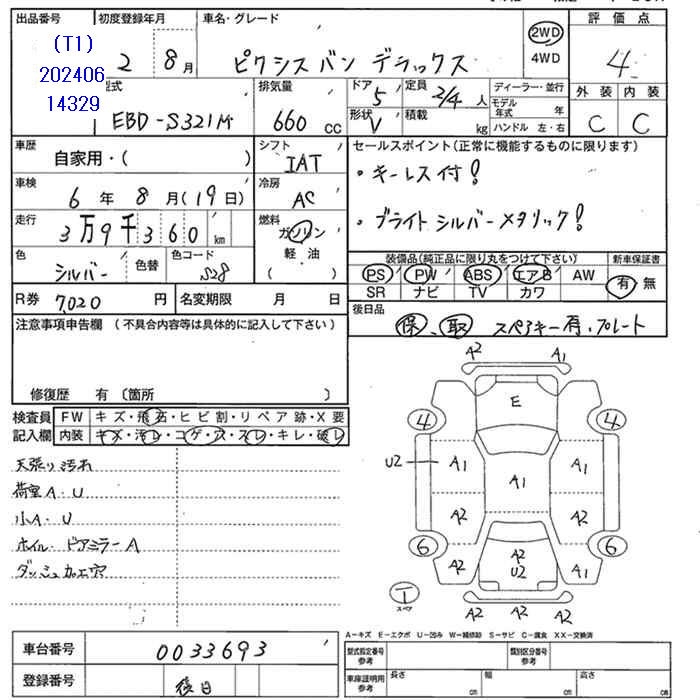 出品番号 初度登録年月 車名・グレード 評価点
(T1)
202406
14329
2 8月 ピクシスバン デラックス 2WD 4
4WD
外装 内装
型式 排気量 ドア 定員 ディーラー・並行
EBD-S321M 660 cc 5 2/4 人 モデル年式 年 C C
形状 V 積載 kg ハンドル 左・右
車歴 シフト セールスポイント(正常に機能するものに限ります)
自家用・( ) IAT ・キーレス付!
車検 冷房
6年 8月(19日) AC ・ブライトシルバーメタリック!
走行 燃料
3万9千360 km ガソリン
軽油
( )
色 色替 色コード 装備品(純正品に限り丸をつけて下さい) 新車保証書
シルバー S28 PS PW ABS エアB AW 有 無
SR ナビ TV カワ
R券 7,020 円 名変期限 月 日 後日品
保、取 スペアキー有、プレート
注意事項申告欄(不具合内容等は具体的に記入して下さい)
修復歴 有〔箇所 〕
検査員 FW キズ・飛石・ヒビ割・リペア跡・X要
記入欄 内装 キズ・汚レ・コゲ・穴・スレ・キレ・破レ
天張り汚れ
荷室A・U
小A・U
ホイル・ドアミラーA
ダッシュ加工穴
A2 A1
E
4 4
U2 A1 A1 A1
A2 A2
6 6
A2 A2 U2 A1
T スペア
A2 A2 A2
A-キズ E-エクボ U-凹み W-補修跡 S-サビ C-腐食 XX-交換済
車台番号 0033693 型式指定番号 参考 類別区分番号 参考
登録番号 後日 車庫証明用 参考 長さ cm 幅 cm 高さ cm